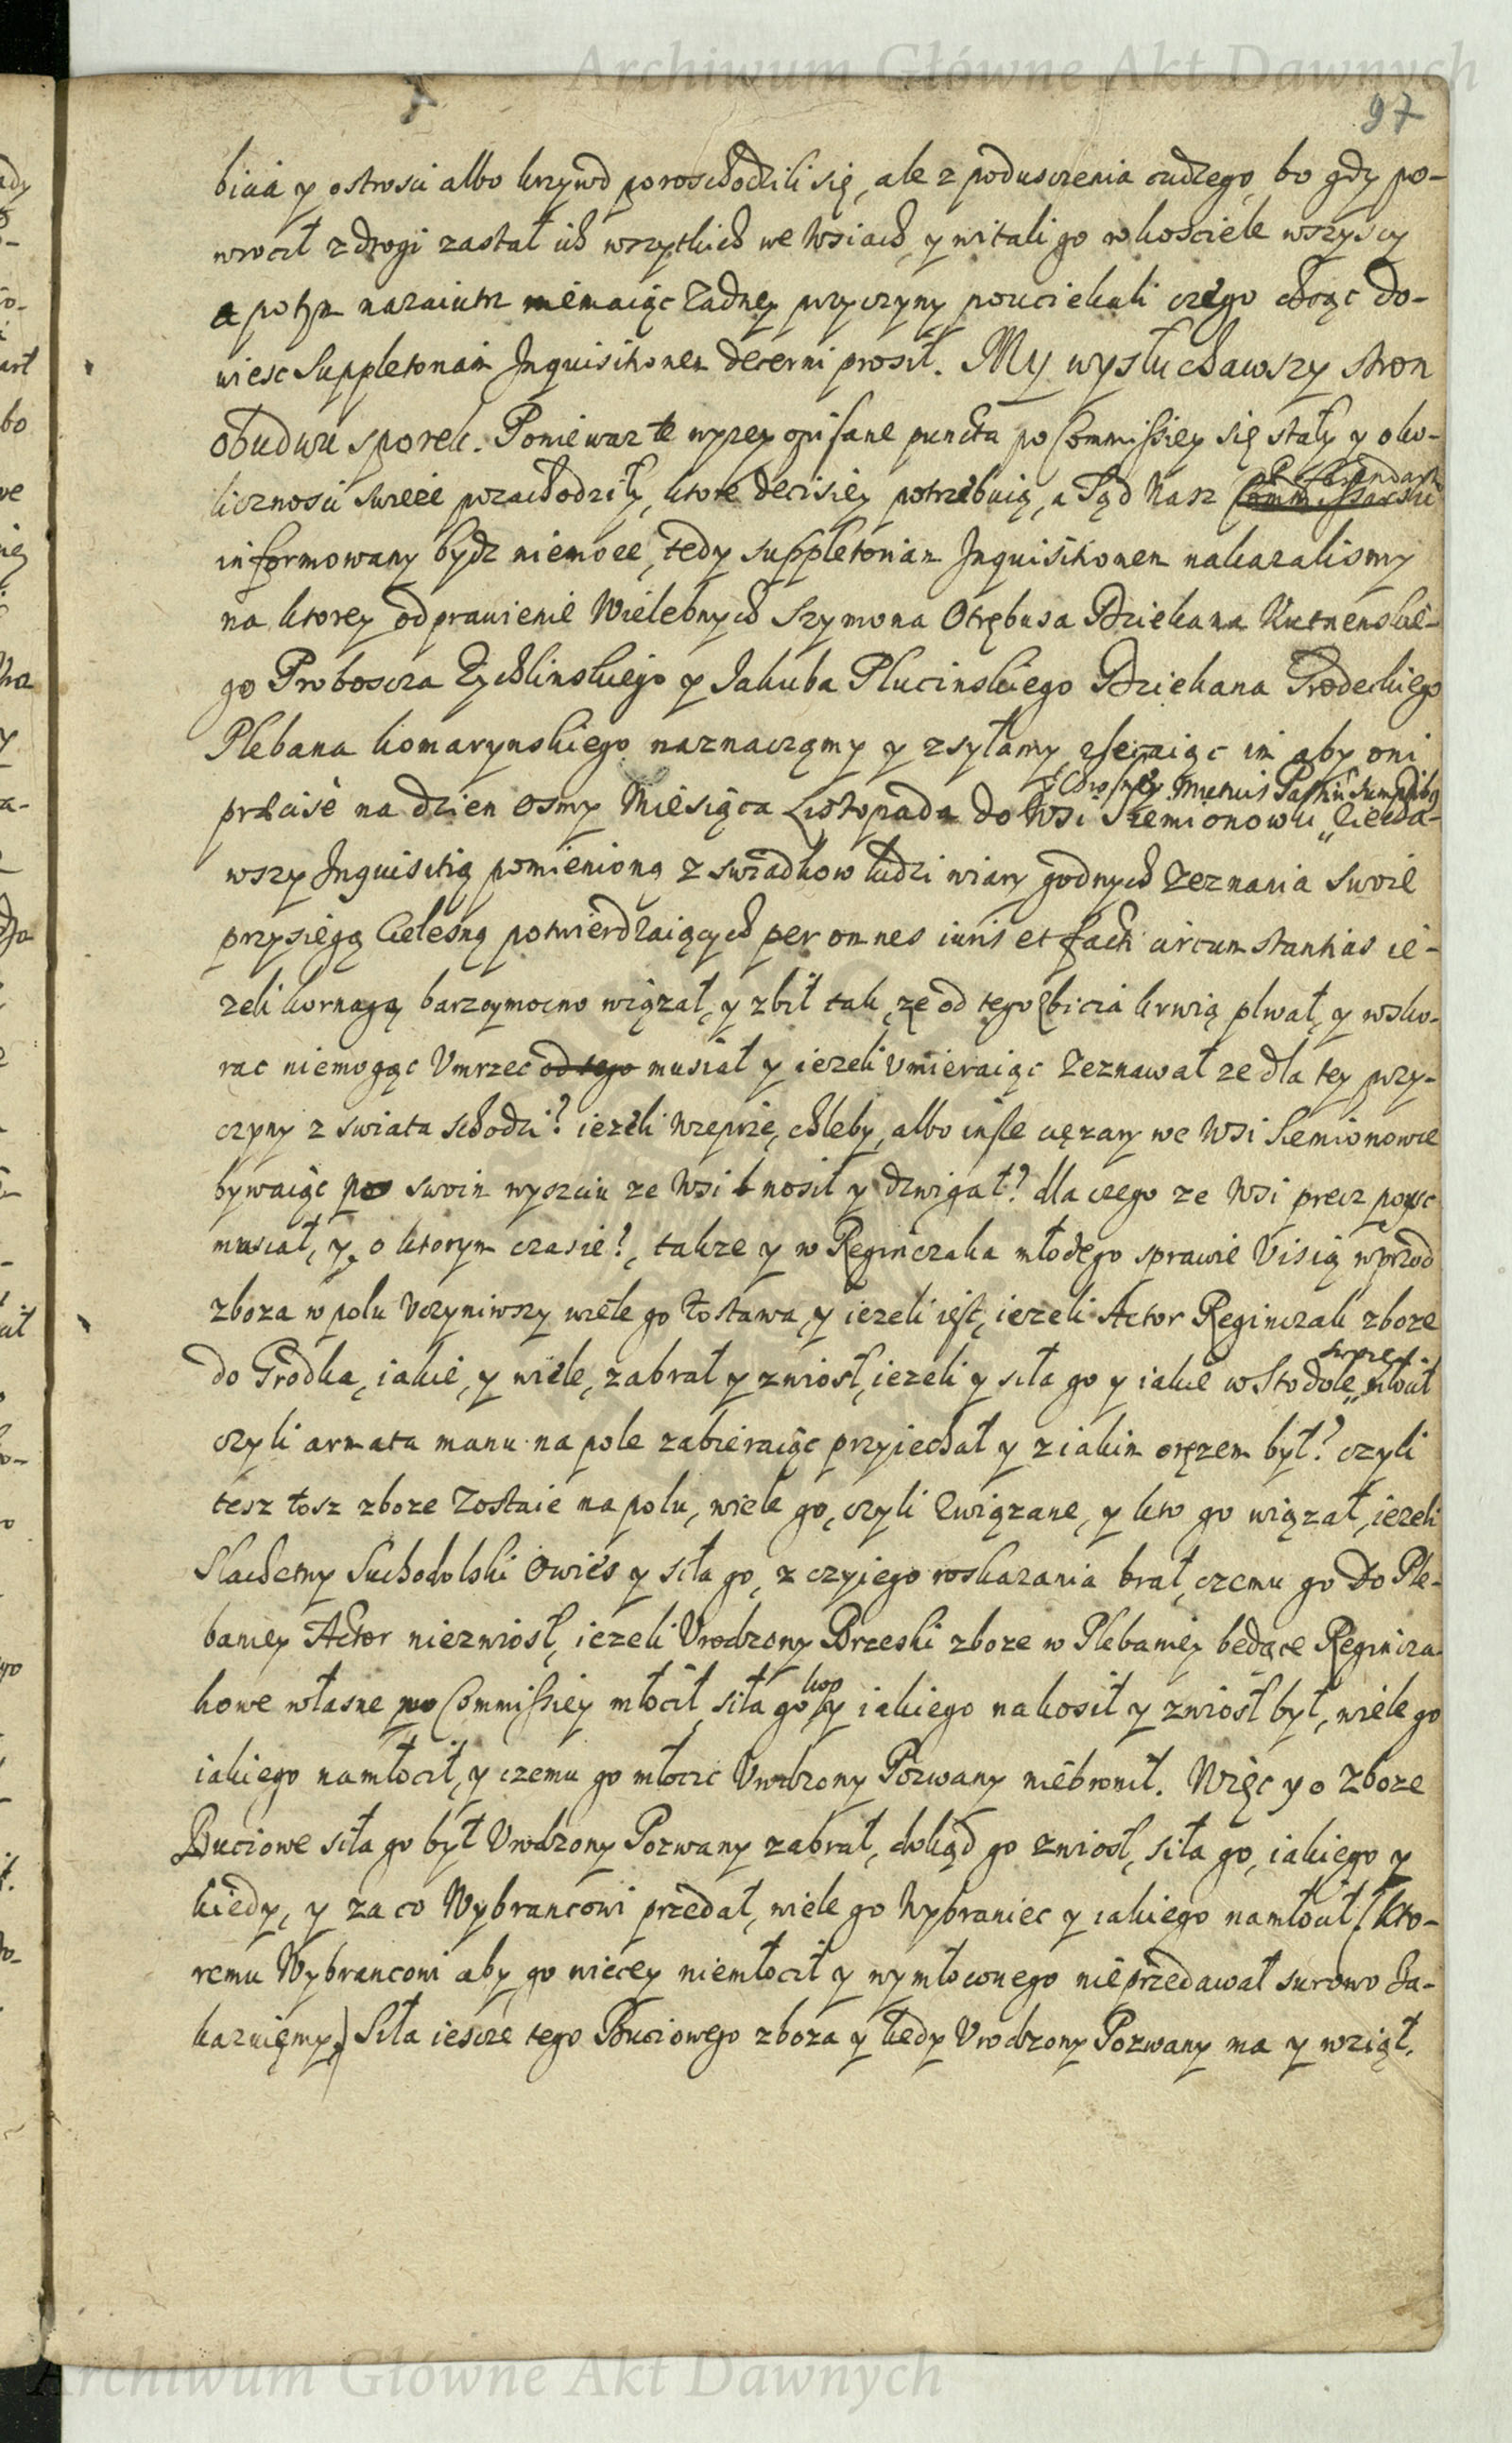 Archiwum Główne Akt Dawnych
97
bicia y ostrosci albo krzywd poroschodzili się, ale z poduscenia cudzego, bo gdy po-
wrocił z drogi zastał ich wszytkich we wsiach, y witali go w kosciele wszyscy
a potym nazaiutrz niemaiąc zadney przyczyny pouciekali czego chcąc do-
wiesc Suppletoriam Inquisitionem decerni prosił. My wysłuchawszy stron
obudwu sporek. Poniewaz te wyzey opisane puncta po Commissiey się stały y oko-
licznosci swieze pozachodziły, ktore decisiey potrzebuią, a Sąd Nasz Commissarski Referendarski
informowany bydz niemoze, tedy suppletoriam Inquisitionem nakazalismy
na ktorey odprawienie Wielebnych Szymona Otrębusa Dziekana Kutnenskie-
go Proboscza Zychlinskiego y Jakuba Plucinskiego Dziekana Grodeckiego
Plebana Komarynskiego naznaczamy y zsyłamy, zlecaiąc im aby oni
przscisé na dzien osmy Miesiąca Listopada do Wsi Siemionowki ziecha-
wszy Inquisitią pomienioną z swiadkow ludzi wiary godnych zeznania swoie
przysięgą Cielesną potwierdzaiących per omnes iuris et facti circumstantias ie-
zeli kornagą barzo mocno wiązał, y zbił tak, ze od tego zbicia krwią plwał, y wsko-
rac niemogąc Umrzec od tego musiał y iezeli Umieraiąc zeznawał ze dla tey przy-
czyny z swiata schodzi? iezeli wieprze, chleby, albo insze cięzary we Wsi Siemionowce
bywaiąc po swoim wyszciu ze Wsi nosił y dzwigał? dla czego ze Wsi precz poysc
musiał, y o ktorym czasie?, takze y w Reginczaka młodego sprawie Visią wprzod
zboza w polu Uczyniwszy wiele go zostawa, y iezeli iest, iezeli Actor Reginczak zboze
do Grodka, iakie, y wiele, zabrał y zwiosł, iezeli y siła go y iakie w Stodole swoiey młocił
czyli armata manu na pole zabieraiąc przyiechał y z iakim oręzem był? czyli
tesz tosz zboze zostaie na polu, wiele go, czyli związane, y kto go wiązał, iezeli
Slachetny Suchodolski Owies y siła go, z czyiego roskazania brał, czemu go do Ple-
baniey Actor niezwiosł, iezeli Urodzony Brzeski zboze w Plebaniey bedące Reginicza-
kowe własne po Commissiey młocił, siła go kop y iakiego nakosił y zwiosł był, wiele go
iakiego namłocił, y czemu go młocic Urodzony Pozwany niebronił. Więc y o zboze
Buciowe siła go był Urodzony Pozwany zabrał, dokąd go zwiosł, siła go, iakiego y
kiedy, y za co Wybrancowi przedał, wiele go Wybraniec y iakiego namłocił (kto-
remu Wybrancowi aby go więcey niemłocił y wymłoconego nieprzedawał surowo Za-
kazuięmy) Siła iescze tego Buciowego zboza y kiedy Urodzony Pozwany ma y wziął.
Archiwum Główne Akt Dawnych